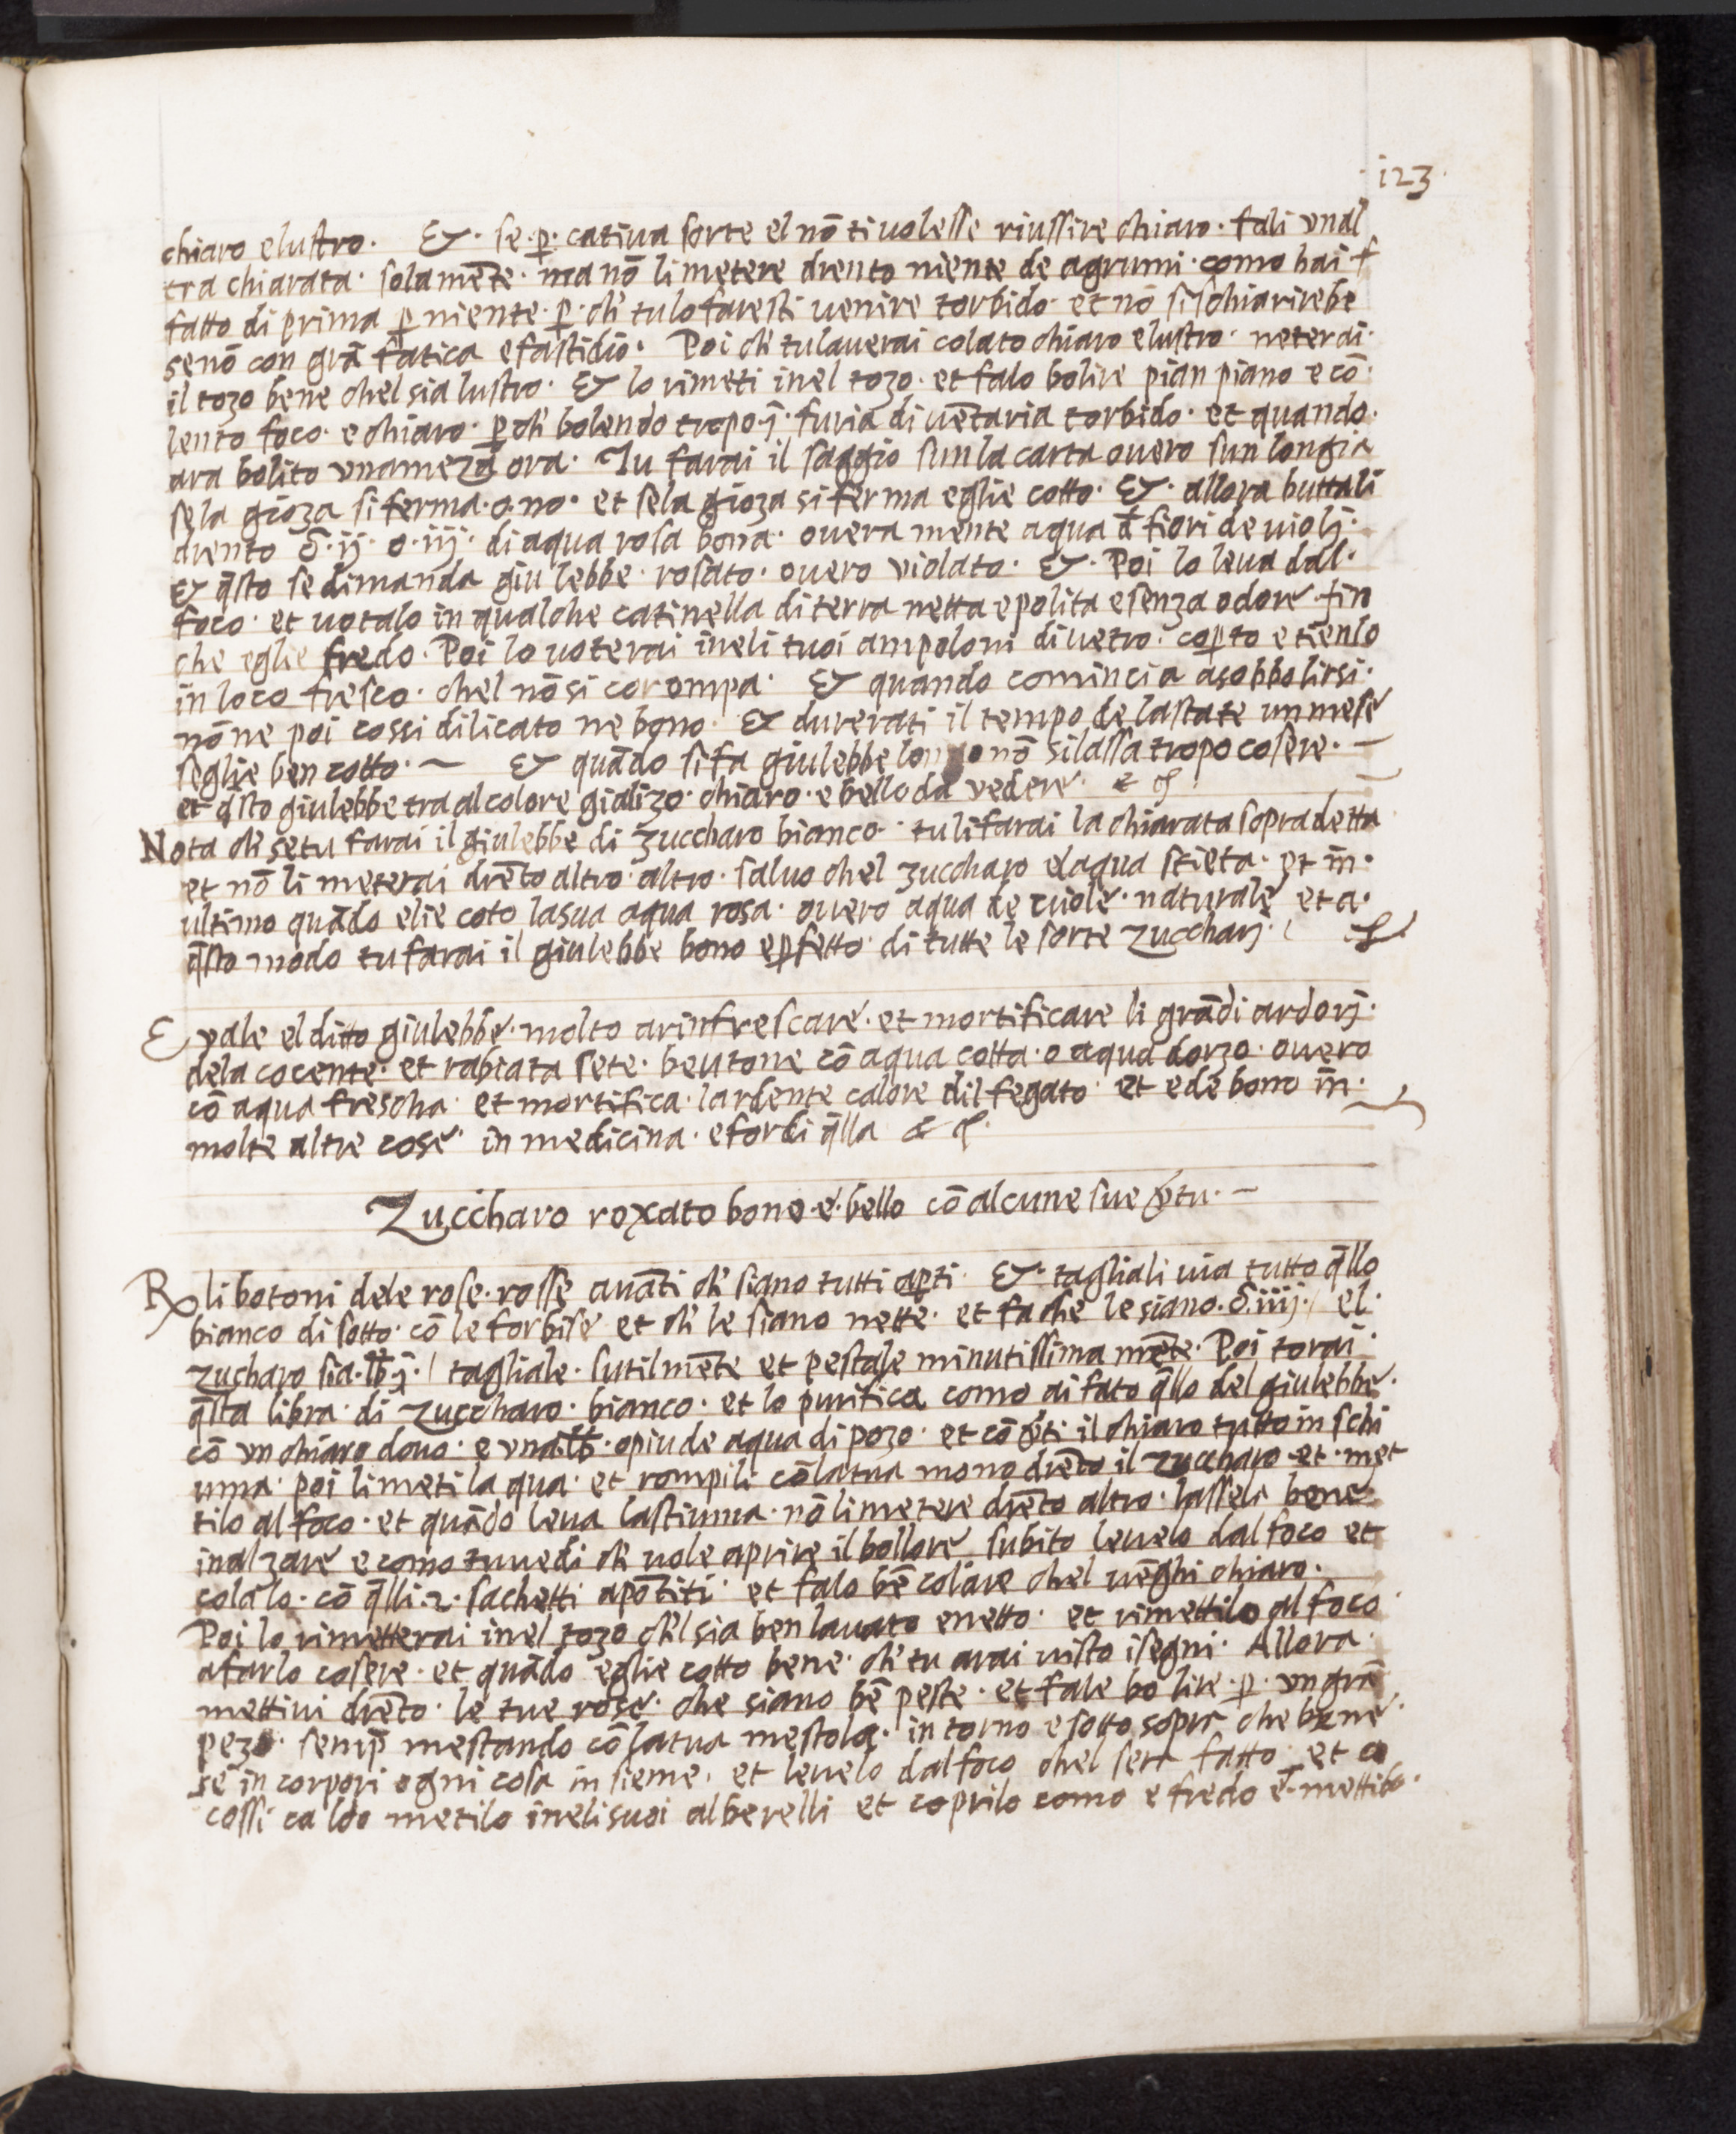 ·i23·
chiaro elustro· Et· se·p̱· catiua sorte el nō ti uolesse riussire chiaro· fali vnal
tra chiarata· solamēte· ma nō li metere drento niente de agrumi· como hai
fatto di prima p̱ niente· p̱· ch' tu lo faresti uenire torbido· et nō si schiarirebe
se nō con grā fatica e fastidio· Poi ch' tu lauerai colato chiaro elustro· neterai·
il tozo bene chel sia lustro· Et lo rimeti inel tozo· et falo bolire pian piano e cō·
lento foco· e chiaro· p̱ ch' bolendo tropo ī· furia diuētaria torbido· et quando·
ara bolito vna meza ora· Tu farai il saggio sun la carta ouero sun longia
se la gioza si ferma·o·no· et se la gioza si ferma eglie cotto· Et· allora buttali
drento ʒ·ij· o·iij· di aqua rosa bona· ouera mente aqua đ fiori de uiolj·
Et q̄sto se dimanda giulebbe· rosato· ouero violato· Et· Poi lo leua dal·
foco· et uotalo in qualche catinella di terra netta e polita e senza odore fin
che eglie fredo· Poi lo uoterai ineli tuoi ampoloni di uetro· cop̱to e tienlo
in loco fresco· chel nō si corompa· Et quando comincia a sobbolirsi·
nō ne poi cossi dilicato ne bono· Et durerati il tempo de lastate un mese
seglie ben cotto·~ Et quādo si fa giulebbe longo nō si lassa tropo cosere·—
et q̄sto giulebbe tra al colore gializo· chiaro· e bello da vedere·
Nota ch' se tu farai il giulebbe di zuccharo bianco· tu li farai la chiarata sopradetta
et nō li meterai drēto altro altro· saluo chel zuccharo el aqua stieta· et īn·
ultimo quādo elie coto la sua aqua rosa· ouero aqua de uiole· naturale et a·
q̄sto modo tu farai il giulebbe bono e p̱fetto· di tutte le sorte zuccharj·
E vale el ditto giulebbe· molto a rinfrescare· et mortificare li grādi ardorj·
dela cocente· et rabiata sete· beutone cō aqua cotta· o aqua dorzo· ouero
cō aqua frescha· et mortifica· lardente calore dil fegato· et ede bono īn·
molte altre cose· in medicina· e fordi q̄lla
Zuccharo roxato bono·e·bello cō alcune sue v̄tu·—
Rx li botoni dele rose·rosse auāti ch' siano tutti ap̱ti· Et· tagliali uia tutto q̄llo
bianco di sotto· cō le forbise et ch' le siano nette· et fa che le siano·ʒ·iiij·/ el·
zucharo sia·lb·j·/ tagliale· sutilmēte et pestale minutissima mēte· Poi torai·
q̄sta libra· di zuccharo· bianco· et lo purifica como ai fato q̄llo del giulebbe·
cō vn chiaro douo· e vna·lb·o piu de aqua di pozo· et cōv̄ti il chiaro tutto in schi
uma· poi li meti la qua· et rompili cō la tua mono drēto il zuccharo et· met
tilo al foco· et quādo leua la stiuma· nō li metere drēto altro· lassela bene
inalzare e como tu uedi ch' uole aprire il bollore subito leuelo dal foco et
colalo· cō q̄lli·2· sachetti apōtiti· et falo bē colare chel uēghi chiaro·
Poi lo rimetterai inel tozo ch'l sia ben lauato e netto· et rimettilo al foco
a farlo cosere· et quādo eglie cotto bene· ch' tu arai uisto i segni· Allora·
mettiui drēto· le tue rose· che siano bē peste· et fale bolire·p̱· vn grā
pezo· semp̱ mestando cō la tua mestola· in torno e sotto sopra che bene·
se in corpori ogni cosa in sieme· et leuelo dal foco chel sera fatto· et co
cossi caldo metilo ineli suoi alberelli et coprilo como e fredo e·mettilo·